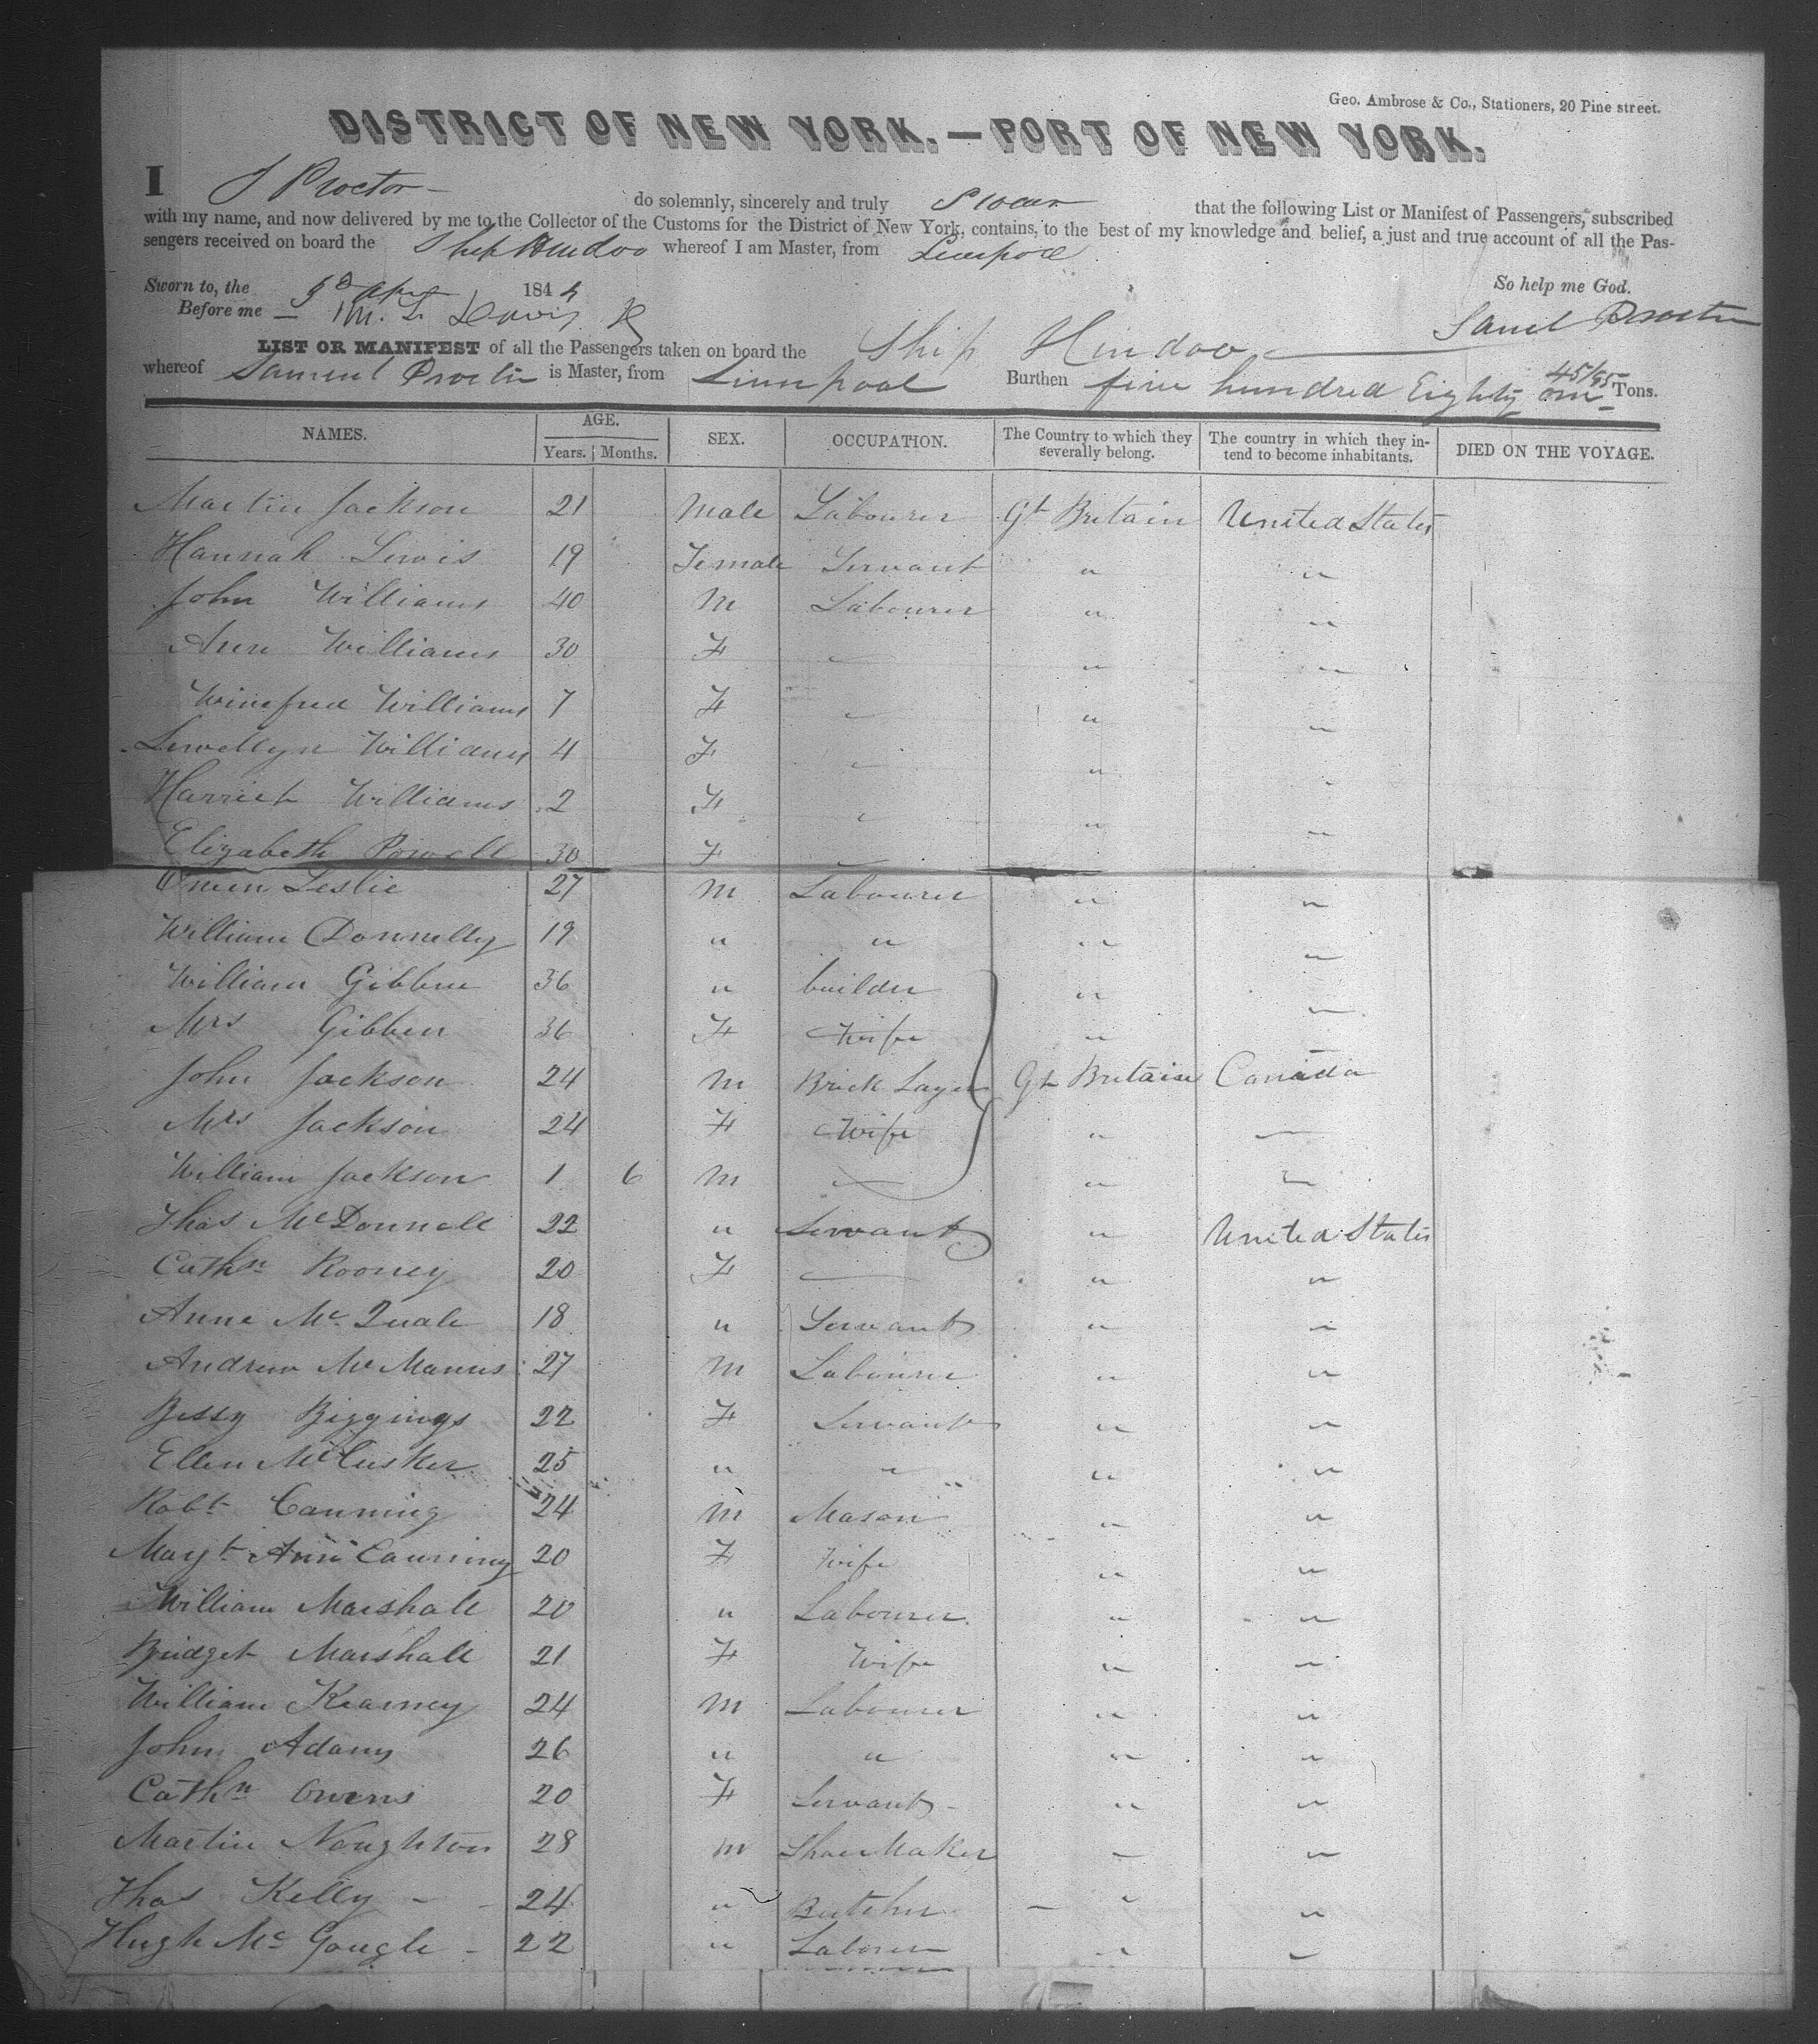 Geo. Ambrose & Co., Stationers, 20 Pine street.
DISTRICT OF NEW YORK.—PORT OF NEW YORK.
I S Proctor do solemnly, sincerely and truly Swear that the following List or Manifest of Passengers, subscribed
with my name, and now delivered by me to the Collector of the Customs for the District of New York, contains, to the best of my knowledge and belief, a just and true account of all the Pas-
sengers received on board the Ship Hindoo whereof I am Master, from Liverpool
So help me God.
Sworn to, the 184
Before me M. L. Davis
Saml Proctor
LIST OR MANIFEST of all the Passengers taken on board the Ship Hindoo
whereof Samuel Proctor is Master, from Liverpool Burthen five hundred Eighty one 45/95 Tons.
NAMES. AGE. Years. Months. SEX. OCCUPATION. The Country to which they severally belong. The country in which they intend to become inhabitants. DIED ON THE VOYAGE.
Martin Jackson 21 Male Labourer Gt Britain United States
Hannah Lewis 19 Female Servant " "
John Williams 40 M Labourer " "
Ann Williams 30 F " " "
Winefred Williams 7 F " " "
Lewellyn Williams 4 F " " "
Harriet Williams 2 F " " "
Elizabeth Powell 30 F " " "
Owen Leslie 27 M Labourer " "
William Donnelly 19 " " " "
William Gibben 36 " builder " "
Mrs Gibben 36 F Wife "
John Jackson 24 M Brick Layer Gt Britain Canada
Mrs Jackson 24 F Wife " "
William Jackson 1 6 M " " "
Thos McDonnell 22 " Servant " United States
Cathn Rooney 20 F " " "
Anne Mc Quale 18 " Servant " "
Andrew McManus 27 M Labourer " "
Bessy Biggings 22 F Servant " "
Ellen McCusker 25 " " " "
Robt Canning 24 M Mason " "
Margt Ann Canning 20 F Wife " "
William Marshall 20 " Labourer " "
Bridget Marshall 21 F Wife " "
William Kearney 24 M Labourer " "
John Adams 26 " " " "
Cathn Owens 20 F Servant " "
Martin Naughton 28 M Shoe Maker " "
Thos Kelly 24 " Butcher " "
Hugh Mc Gougle 22 " Laborer " "